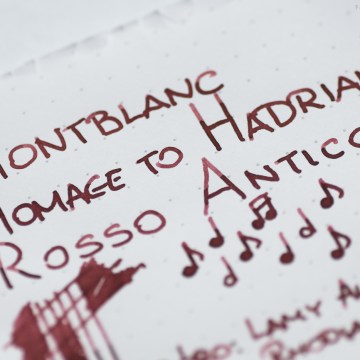 MONTBLANC
HOMAGE TO HADRIAN
ROSSO ANTICO
LAMY